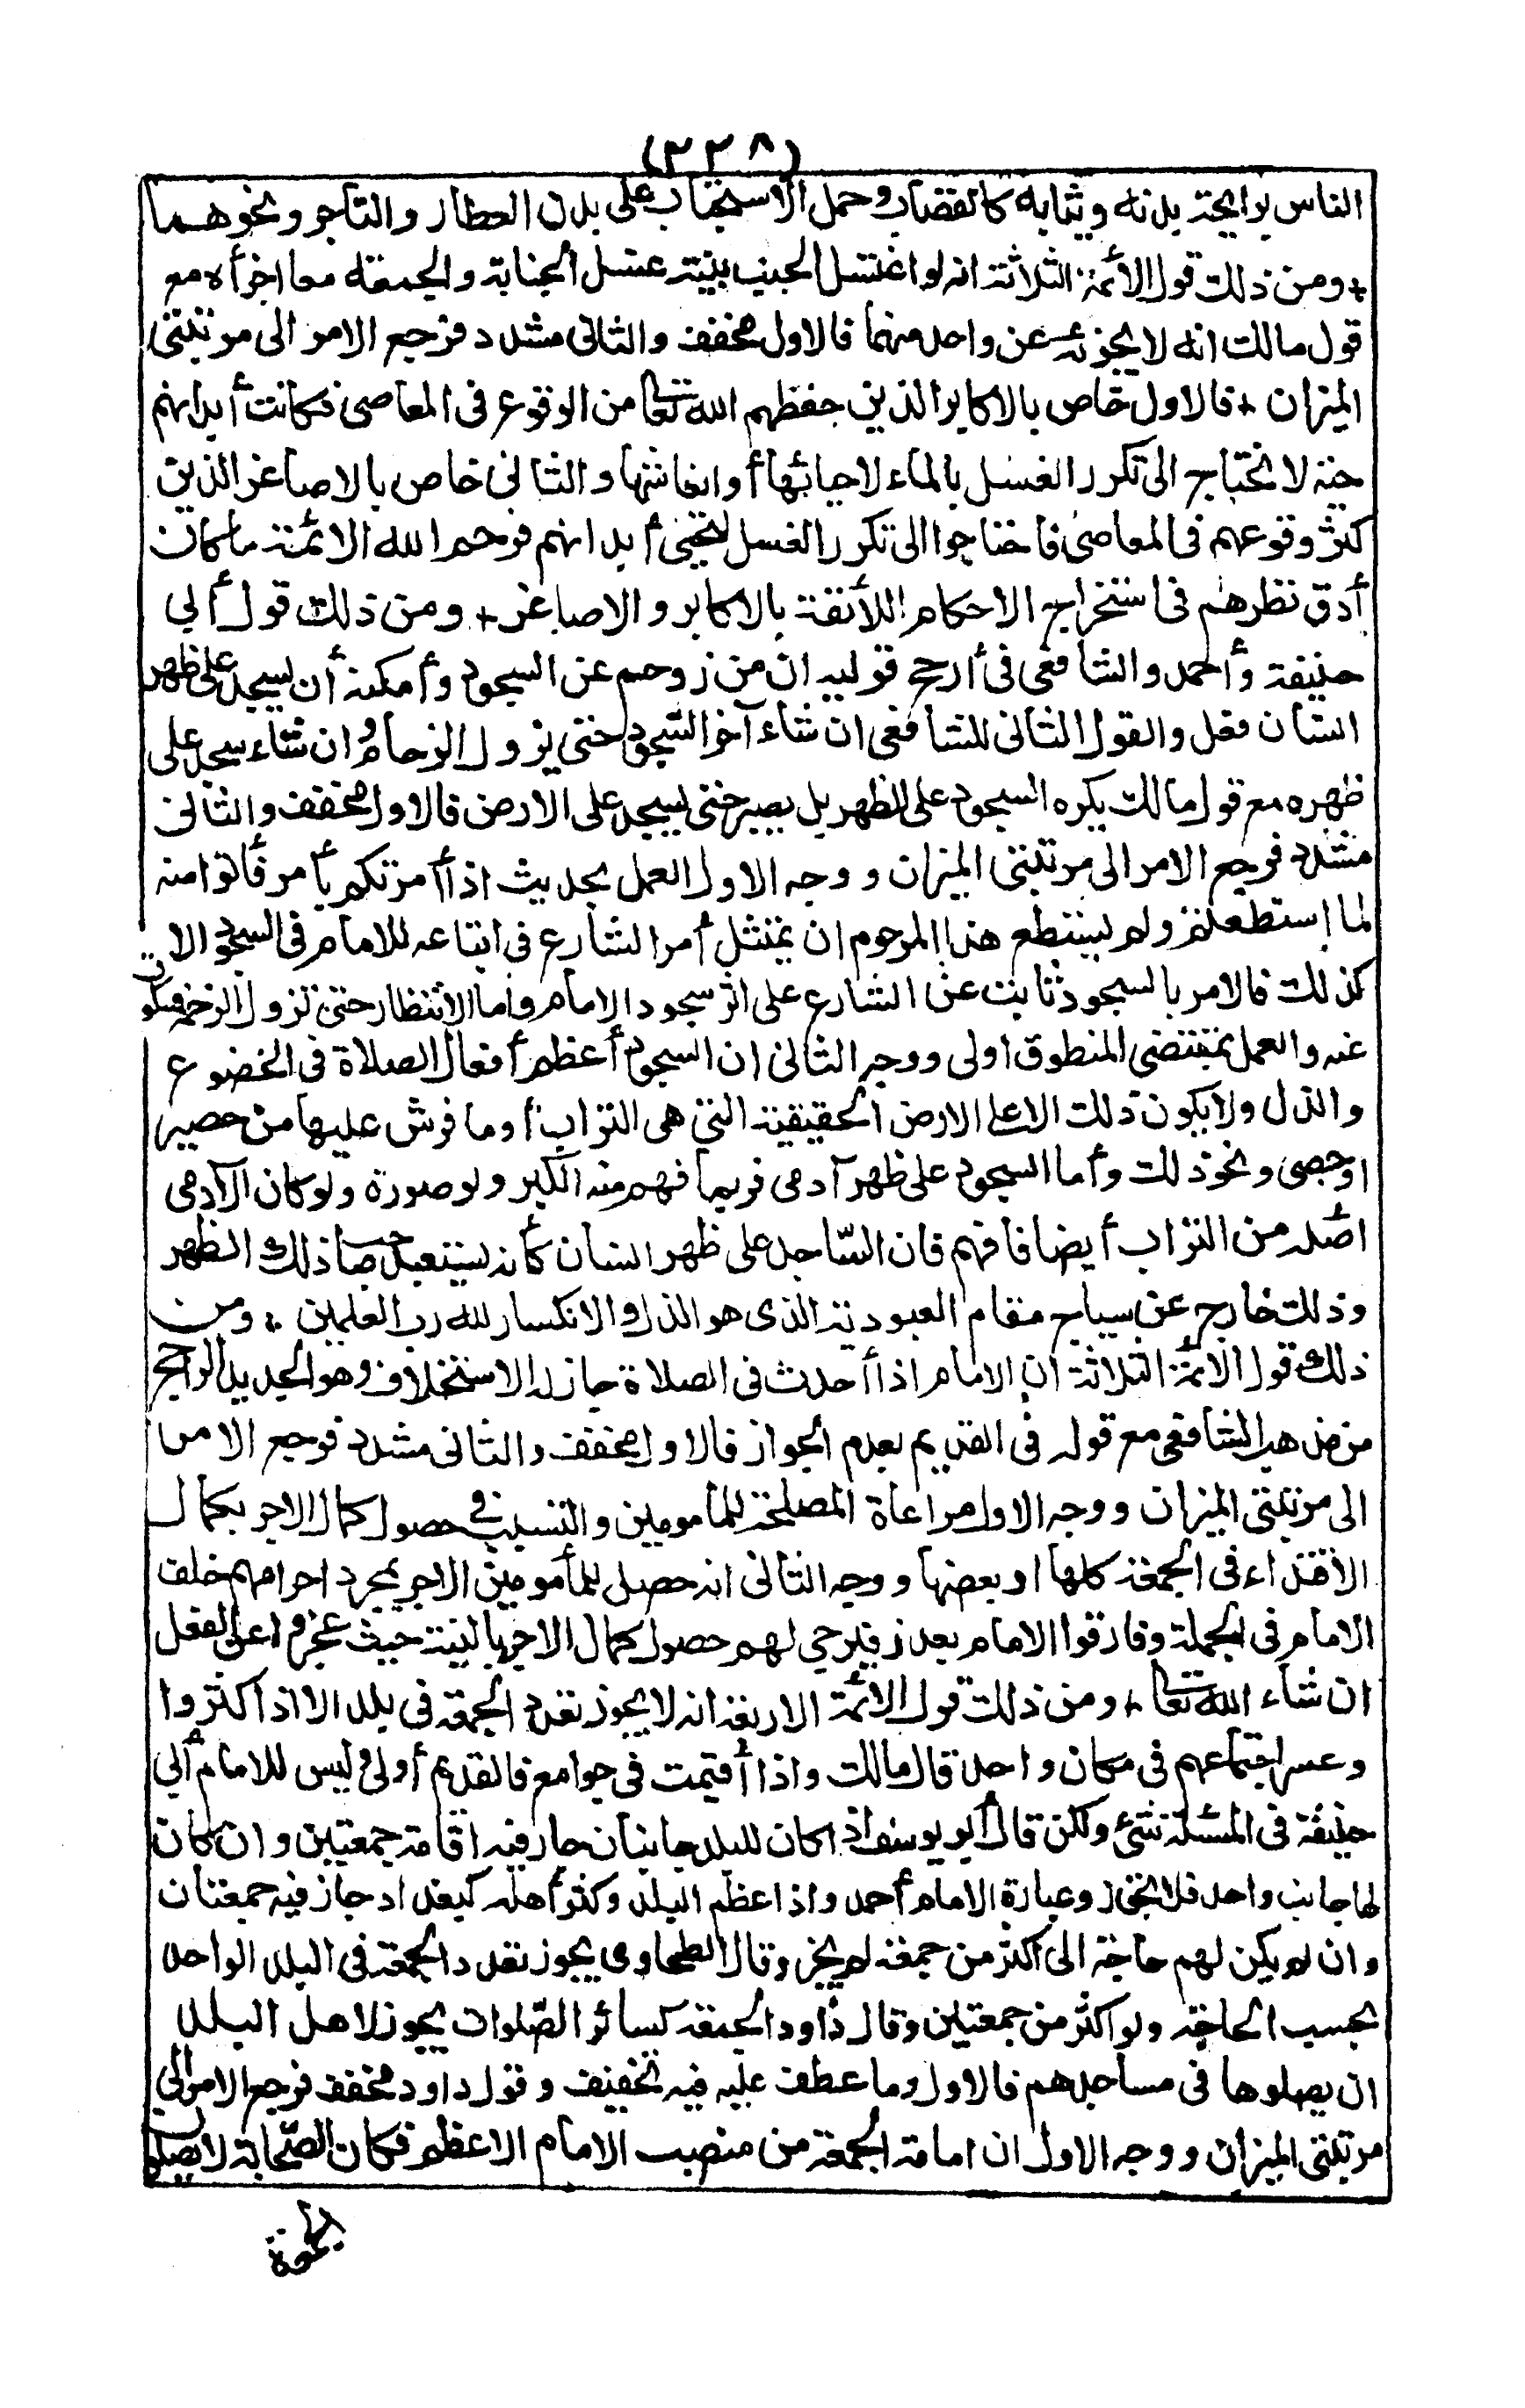 (٢٢٨)
الناس برايحة بدنه وثيابه كالقصاب وحمل الاستحباب على بدن العطار والتاجر ونحوهما
+ ومن ذلك قول الأئمة الثلاثة انه لو اغتسل الجنب بنية غسل الجنابة والجمعة معا اجزأه مع
قول مالك انه لا يجزئه عن واحد منهما فالاول مخفف والثانى مشدد فرجع الامر الى مرتبتى
الميزان + فالاول خاص بالاكابر الذين حفظهم الله تعا من الوقوع فى المعاصى فكانت أبدانهم
حية لا تحتاج الى تكرر الغسل بالماء لاحيائها أو انعاشها والثانى خاص بالاصاغر الذين
كثر وقوعهم فى المعاصى فاحتاجوا الى تكرر الغسل لتحيى أبدانهم فرحم الله الائمة ما كان
أدق نظرهم فى استخراج الاحكام اللائقة بالاكابر والاصاغر + ومن ذلك قول أبي
حنيفة وأحمد والشافعى فى أرجح قوليه ان من زوحم عن السجود وأمكنه أن يسجد على ظهر
انسان فعل والقول الثانى للشافعى ان شاء آخر السجود حتى يزول الزحام وان شاء سجد على
ظهره مع قول مالك يكره السجود على الظهر بل يصبر حتى يسجد على الارض فالاول مخفف والثانى
مشدد فرجع الامر الى مرتبتى الميزان ووجه الاول العمل بحديث اذا أمرتكم بأمر فأتوا منه
لما إستطعتم ولم يستطع هذا المزحوم ان يمتثل أمر الشارع فى اتباعه للامام فى السجود الا
كذلك فالامر بالسجود ثابت عن الشارع على اثر سجود الامام واما الانتظار حتى تزول الزحمة فسكوت
عنه والعمل بمقتضى المنطوق اولى ووجه الثانى ان السجود أعظم أفعال الصلاة فى الخضوع
والذل ولا يكون ذلك الا على الارض الحقيقية التى هى التراب أو ما فرش عليها من حصير
او حصى ونحو ذلك وأما السجود على ظهر آدمى فربما فهم منه الكبر ولو صورة ولو كان الآدمى
اصله من التراب أيضا فافهم فان الساجد على ظهر انسان كأنه يستعبد صا ذلك الظهر
وذلك خارج عن سياج مقام العبودية الذى هو الذل والانكسار لله رب العلمين ٭ ومن
ذلك قول الائمة الثلاثة ان الامام اذا أحدث فى الصلاة جاز له الاستخلاف وهو الجديد الراجح
من مذهب الشافعى مع قوله فى القديم بعدم الجواز فالاول مخفف والثانى مشدد فرجع الامر
الى مرتبتى الميزان ووجه الاول مراعاة المصلحة للمأمومين والتسبب فى حصول كمال الاجر بكمال
الاقتداء فى الجمعة كلها او بعضها ووجه الثانى انه حصل للمأمومين الاجر بمجرد احرامهم خلف
الامام فى الجملة وفارقوا الامام بعذر فيرجى لهم حصول كمال الاجر بالنية حيث عجزوا عن الفعل
ان شاء الله تعا + ومن ذلك قول الائمة الاربعة انه لا يجوز تعدد الجمعة فى بلد الا اذا كثروا
وعسر اجتماعهم فى مكان واحد قال مالك واذا أقيمت فى جوامع فالقديم أولى وليس للامام أبي
حنيفة فى المسئلة شئ ولكن قال أبو يوسف اذا كان للبلد جانبان جاز فيه اقامة جمعتين وان كان
لها جانب واحد فلا يجوز وعبارة الامام أحمد واذا عظم البلد وكثر أهله كبغداد جاز فيه جمعتان
وان لم يكن لهم حاجة الى اكثر من جمعة لم يجز وقال الطحاوى يجوز تعدد الجمعة فى البلد الواحد
بحسب الحاجة ولو اكثر من جمعتين وقال داود الجمعة كسائر الصلوات يجوز لاهل البلد
ان يصلوها فى مساجدهم فالاول وما عطف عليه فيه تخفيف وقول داود مخفف فرجع الامر الى
مرتبتى الميزان ووجه الاول ان امامة الجمعة من منصب الامام الاعظم فكان الصحابة لا يصلون
الجمعة